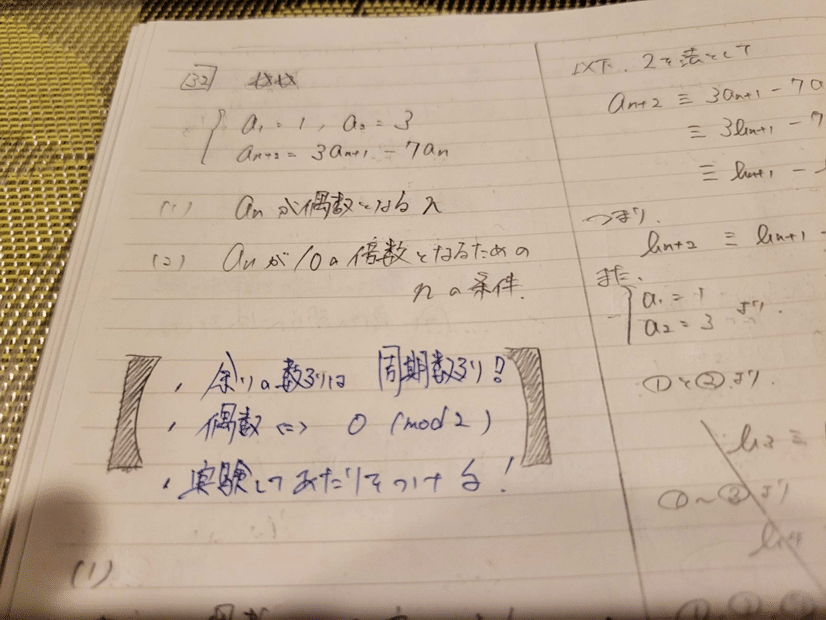 32
a₁ = 1, a₂ = 3
aₙ₊₂ = 3aₙ₊₁ - 7aₙ
(1) aₙが偶数となるn
(2) aₙが10の倍数となるための
nの条件.
・余りの数列は 周期数列?
・偶数 ⇔ 0 (mod 2)
・実験してあたりをつける!
(1)
以下. 2を法として
aₙ₊₂ ≡ 3aₙ₊₁ - 7a
≡ 3bₙ₊₁ - 7
≡ bₙ₊₁ -
つまり.
bₙ₊₂ ≡ bₙ₊₁ -
また.
a₁ = 1
a₂ = 3 より.
①と②より.
b₃ ≡
①~③より
b₄